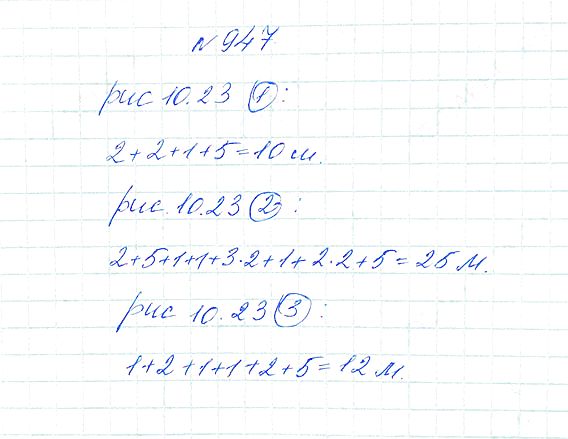 № 947
рис 10.23 ①:
2+2+1+5=10 м.
рис. 10.23 ②:
2+5+1+1+3·2+1+2·2+5=25 м.
рис 10.23 ③:
1+2+1+1+2+5=12 м.